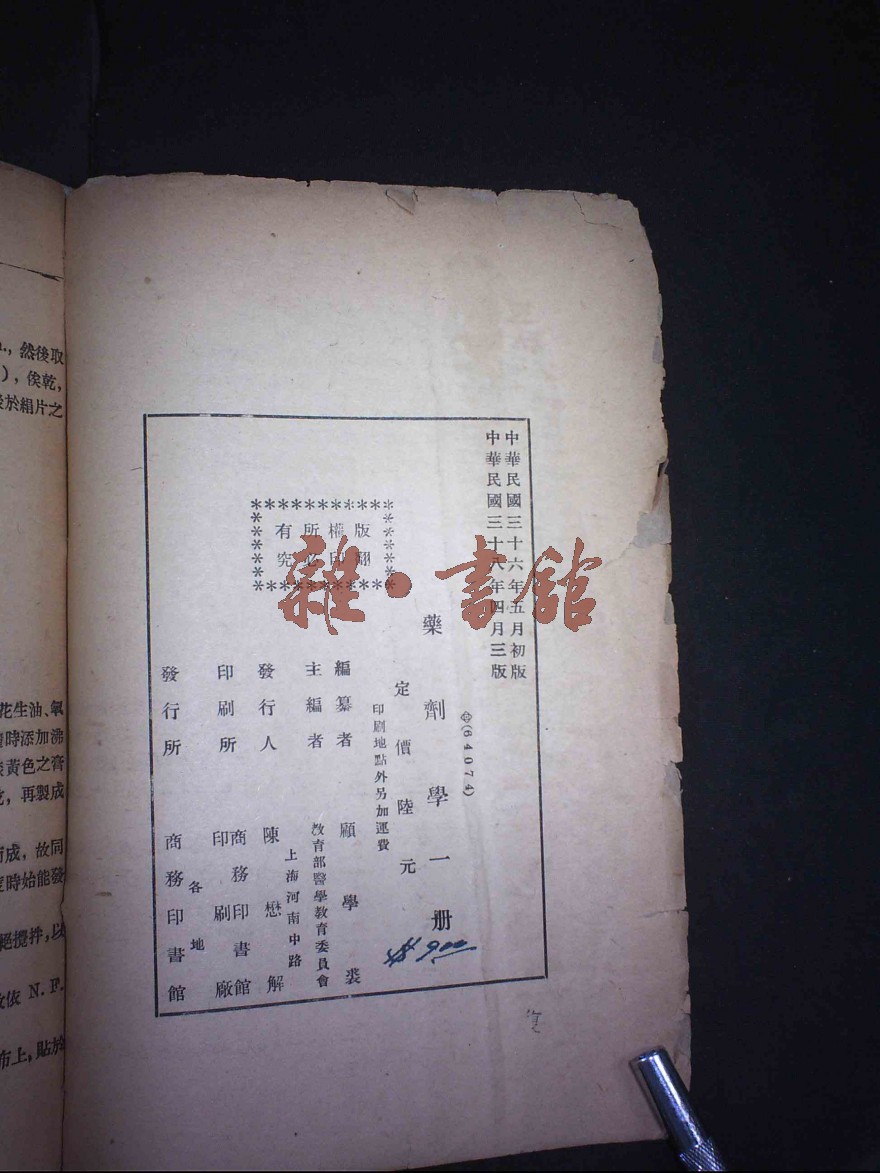 中華民國三十六年五月初版
中華民國三十八年四月三版
(64074)
藥劑學一册
定價陸元
印刷地點外另加運費
版權所有
翻印必究
編纂者 顧學裘
主編者 教育部醫學教育委員會
上海河南中路
發行人 陳懋解
印刷所 商務印書館印刷廠
發行所 各地商務印書館
雜·書館
，然後取
），俟乾，
於絹片之
花生油、氧
時添加沸
黃色之膏
，再製成
成，故同
度時始能發
攪拌，以
依 N. F.
布上，貼於